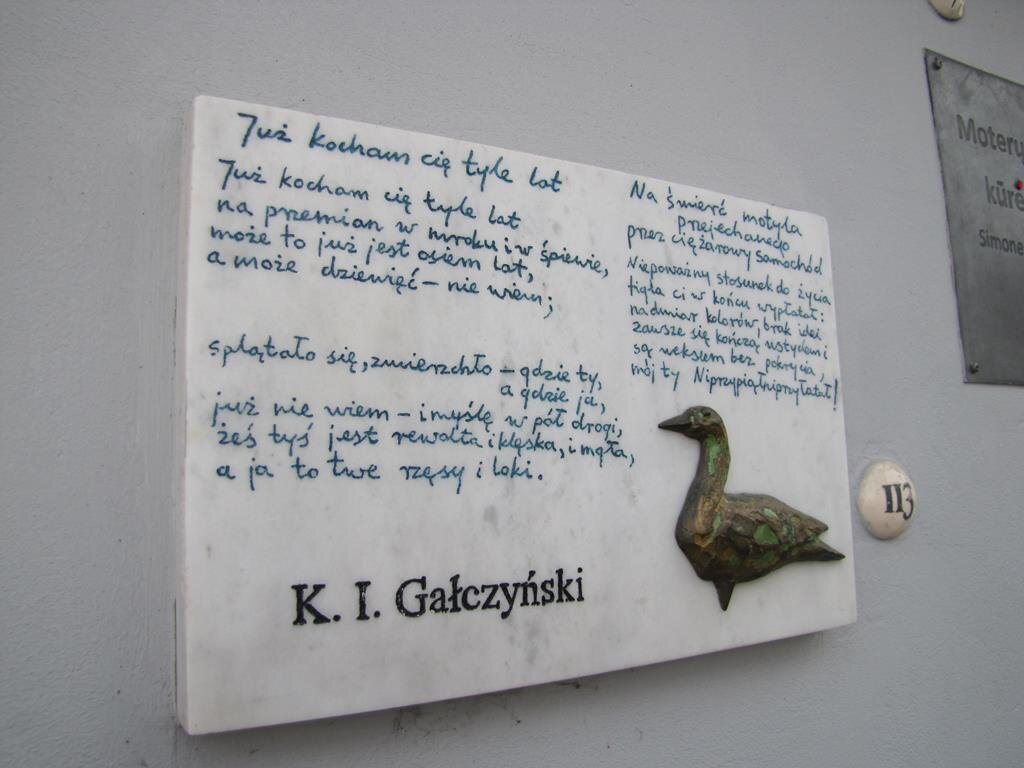 Już kocham cię tyle lat
Już kocham cię tyle lat
na przemian w mroku i w śpiewie,
może to już jest osiem lat,
a może dziewięć – nie wiem;
splątało się, zmierzchło – gdzie ty,
a gdzie ja,
już nie wiem – i myślę w pół drogi,
żeś tyś jest rewolta i klęska, i mgła,
a ja to twe rzęsy i loki.
K. I. Gałczyński
Na śmierć motyla
przejechanego
przez ciężarowy samochód
Niepoważny stosunek do życia
figla ci w końcu wypłatał:
nadmiar kolorów, brak idei
zawsze się kończą wstydem i
są wekslem bez pokrycia,
mój ty Niprzypiąłniprzyłatał!
113
Moteru
kūrė
Simone